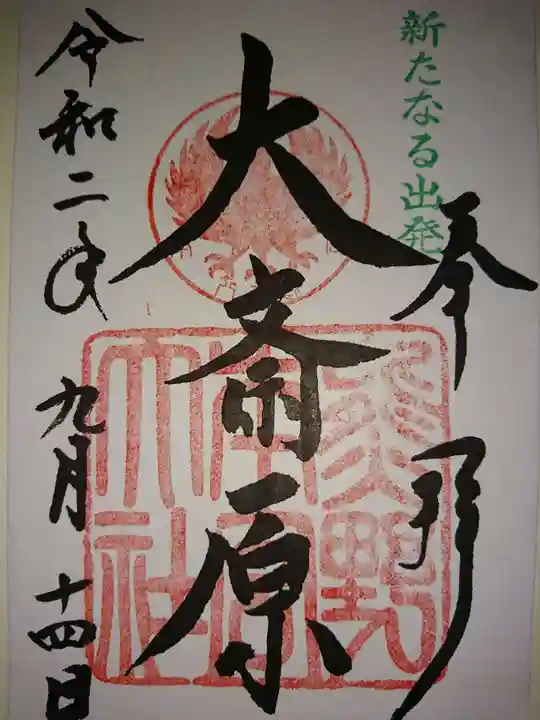 新たなる出発
奉拝
大斎原
令和二年
九月
十四日
熊野
本宮
大社